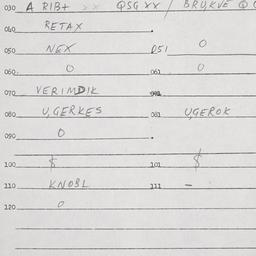 030 A RIB+ xx QSG XX / BRUKVE Q
040 RETAX
050 NEX 051 0
060 0 061 0
070 VERIMDIK
080 U,GERKES 081 UGEROK
090 0
100 $ 101 $
110 KNOBL 111 -
120 0